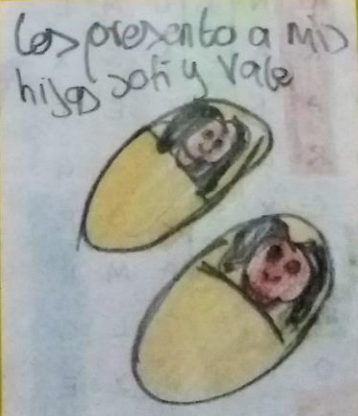 Les presento a mis
hijas sofi y Vale